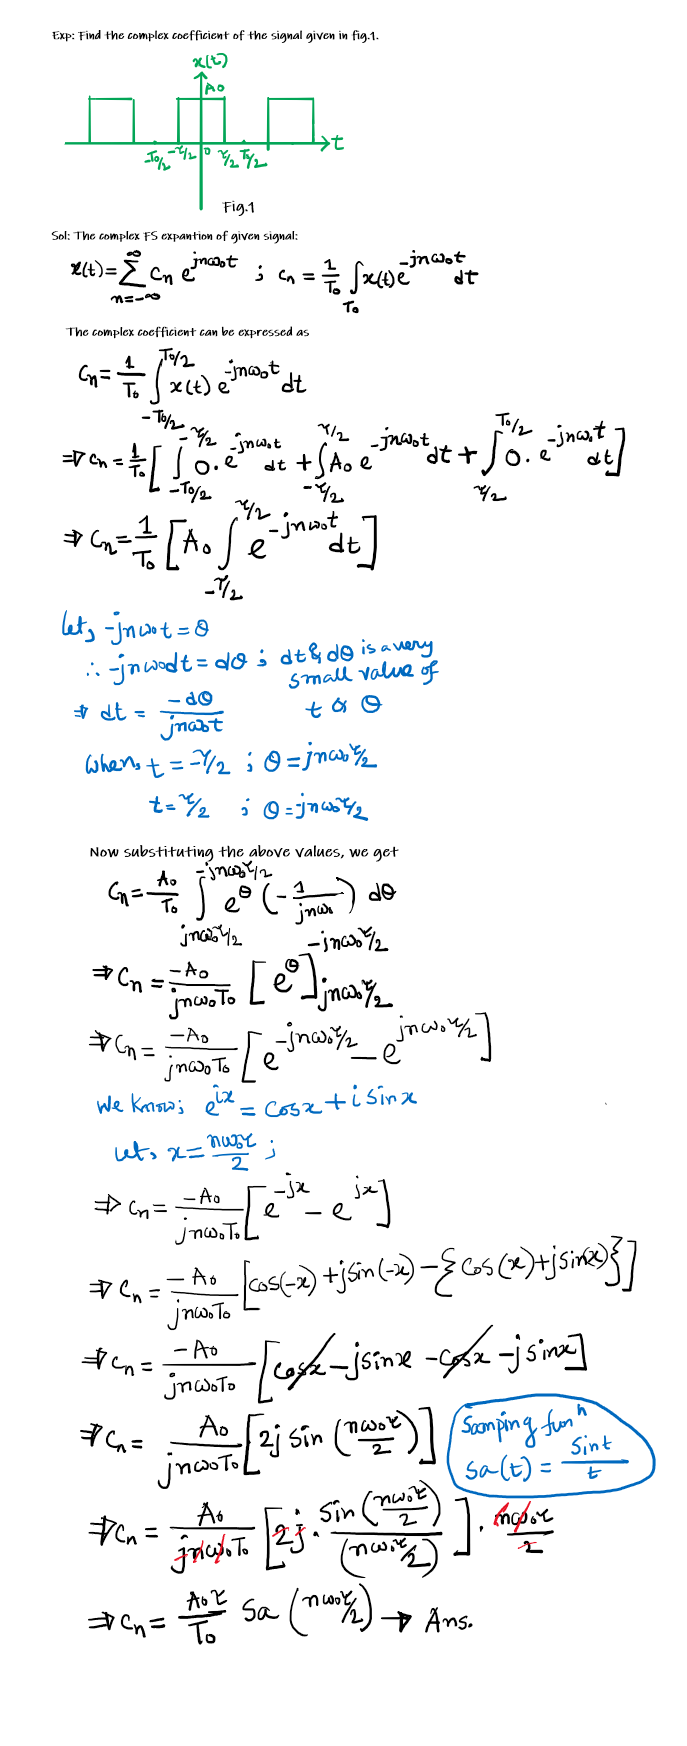 Exp: Find the complex coefficient of the signal given in fig.1.
x(t)
A0
-T0/2 -τ/2 0 τ/2 T0/2 t
Fig.1
Sol: The complex FS expantion of given signal:
x(t)=∑_{n=-∞}^{∞} Cn e^{jnω0t} ; cn = 1/T0 ∫_{T0} x(t)e^{-jnω0t} dt
The complex coefficient can be expressed as
Cn = 1/T0 ∫_{-T0/2}^{T0/2} x(t) e^{-jnω0t} dt
⇒ Cn = 1/T0 [∫_{-T0/2}^{-τ/2} 0. e^{-jnω0t} dt + ∫_{-τ/2}^{τ/2} A0 e^{-jnω0t} dt + ∫_{τ/2}^{T0/2} 0. e^{-jnω0t} dt]
⇒ Cn = 1/T0 [A0 ∫_{-τ/2}^{τ/2} e^{-jnω0t} dt]
let, -jnω0t = θ
∴ -jnω0dt = dθ ; dt & dθ is a very
small value of
⇒ dt = -dθ/jnω0t t or θ
When, t = -τ/2 ; θ = jnω0τ/2
t = τ/2 ; θ = -jnω0τ/2
Now substituting the above values, we get
Cn = A0/T0 ∫_{jnω0τ/2}^{-jnω0τ/2} e^θ (-1/jnω0) dθ
⇒ Cn = -A0/jnω0T0 [e^θ]_{jnω0τ/2}^{-jnω0τ/2}
⇒ Cn = -A0/jnω0T0 [e^{-jnω0τ/2} - e^{jnω0τ/2}]
We know; e^{ix} = cosx + i sinx
Let, x = nω0τ/2 ;
⇒ Cn = -A0/jnω0T0 [e^{-jx} - e^{jx}]
⇒ Cn = -A0/jnω0T0 [cos(-x) + jsin(-x) - {cos(x) + jsin(x)}]
⇒ Cn = -A0/jnω0T0 [cosx - jsinx - cosx - jsinx]
⇒ Cn = A0/jnω0T0 [2j sin(nω0τ/2)]
Samping funⁿ
sa(t) = sint/t
⇒ Cn = A0/jnω0T0 [2j · sin(nω0τ/2)/(nω0τ/2)] · nω0τ/2
⇒ Cn = A0τ/T0 Sa(nω0τ/2) → Ans.